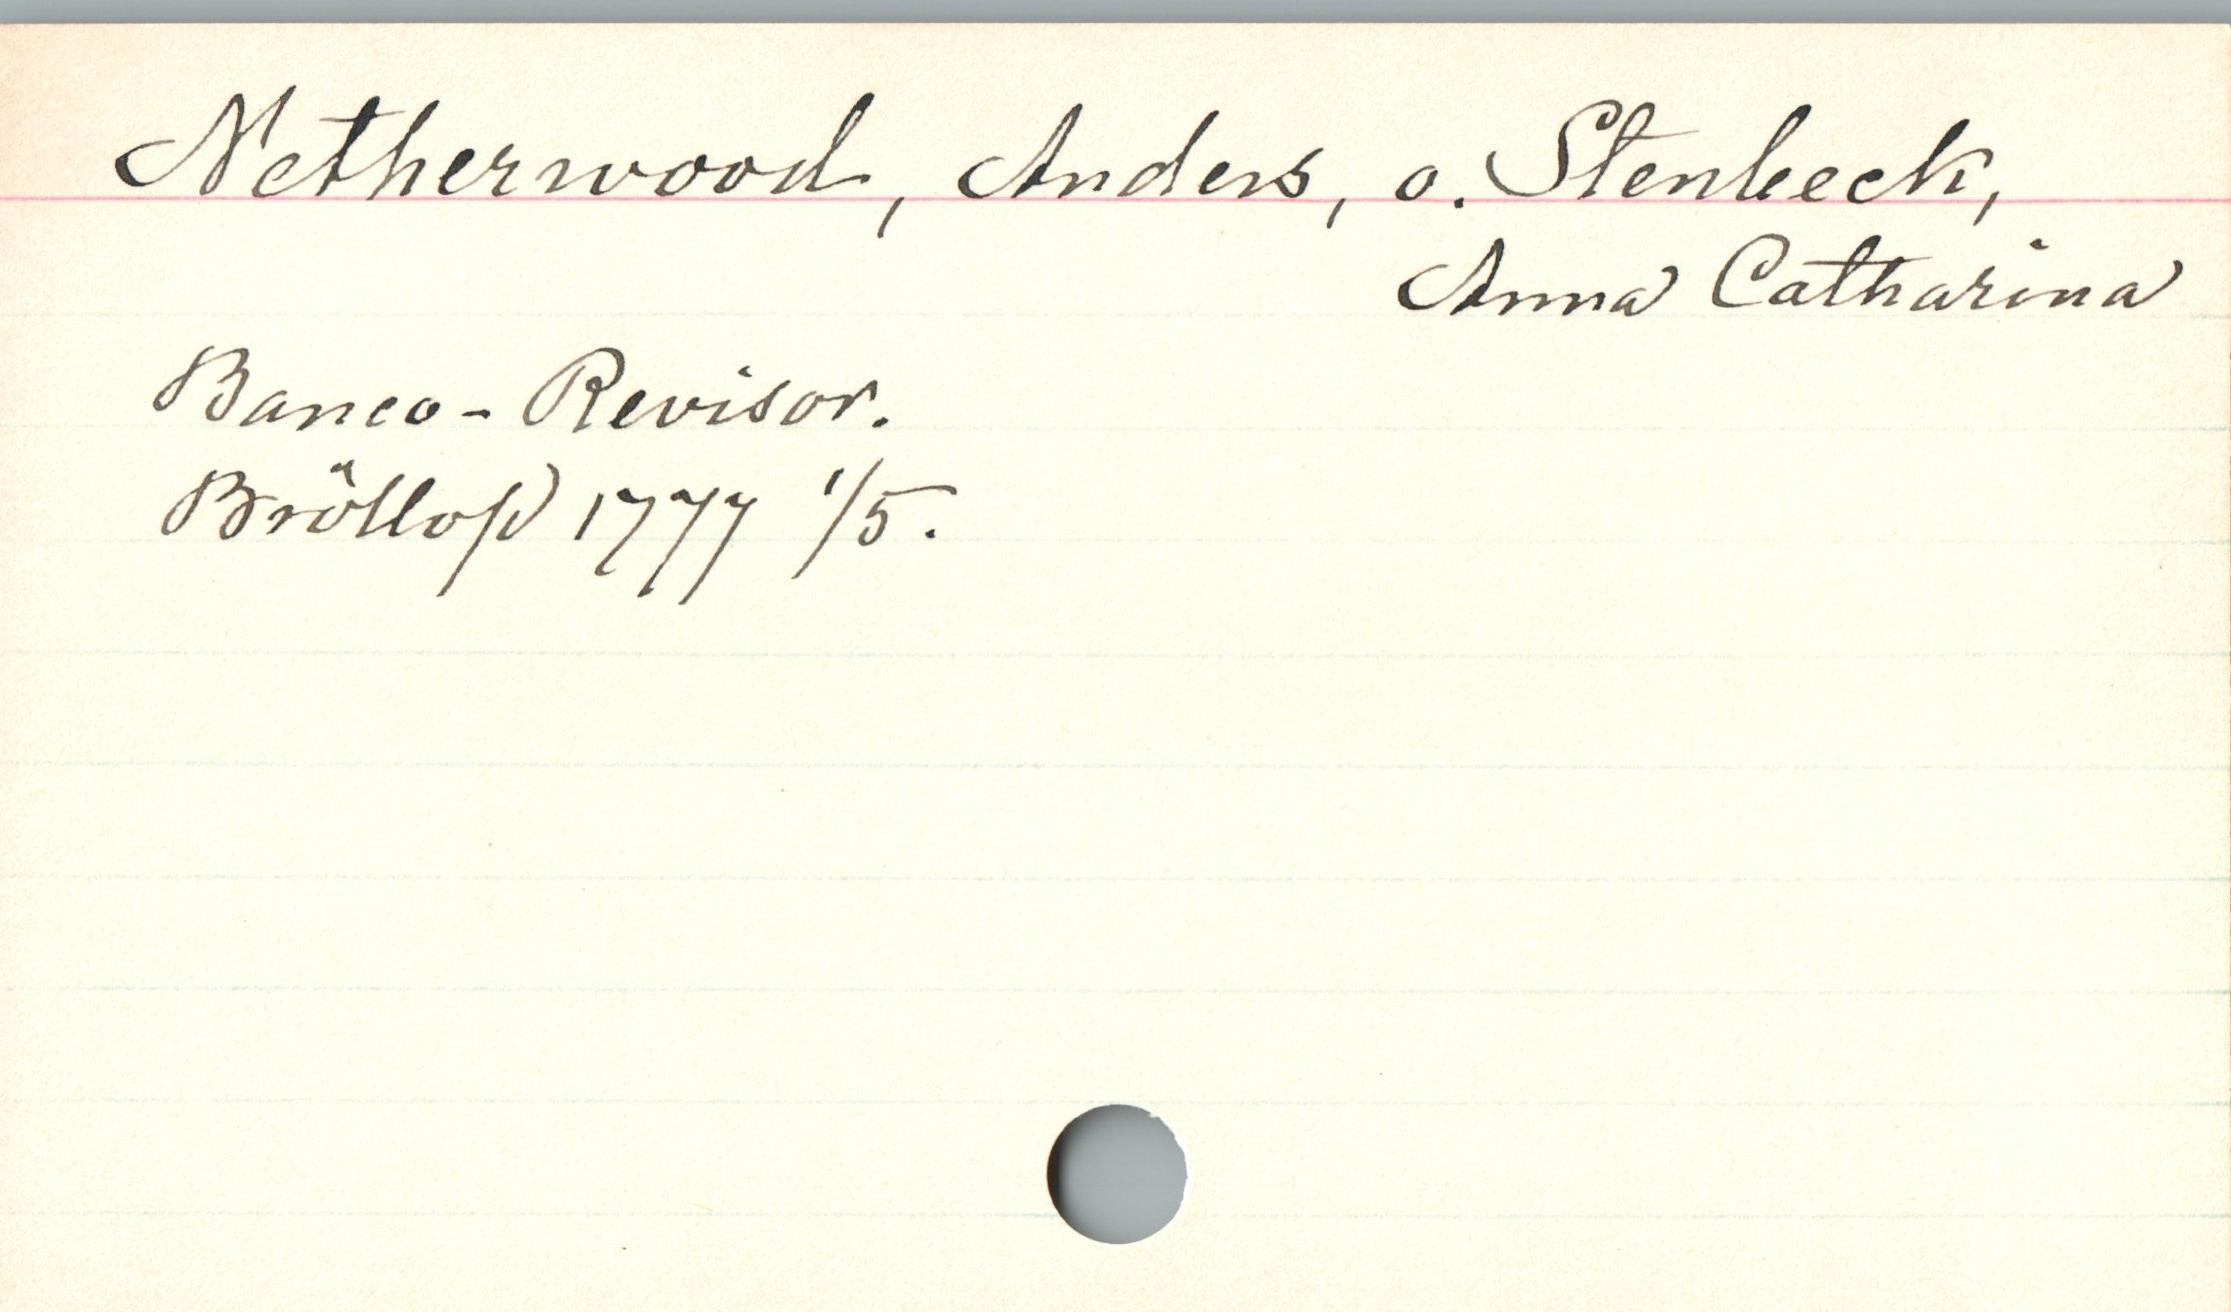 Netherwood, Anders, o. Stenbeck,
Anna Catharina
Banco-Revisor.
Bröllop 1777 1/5.